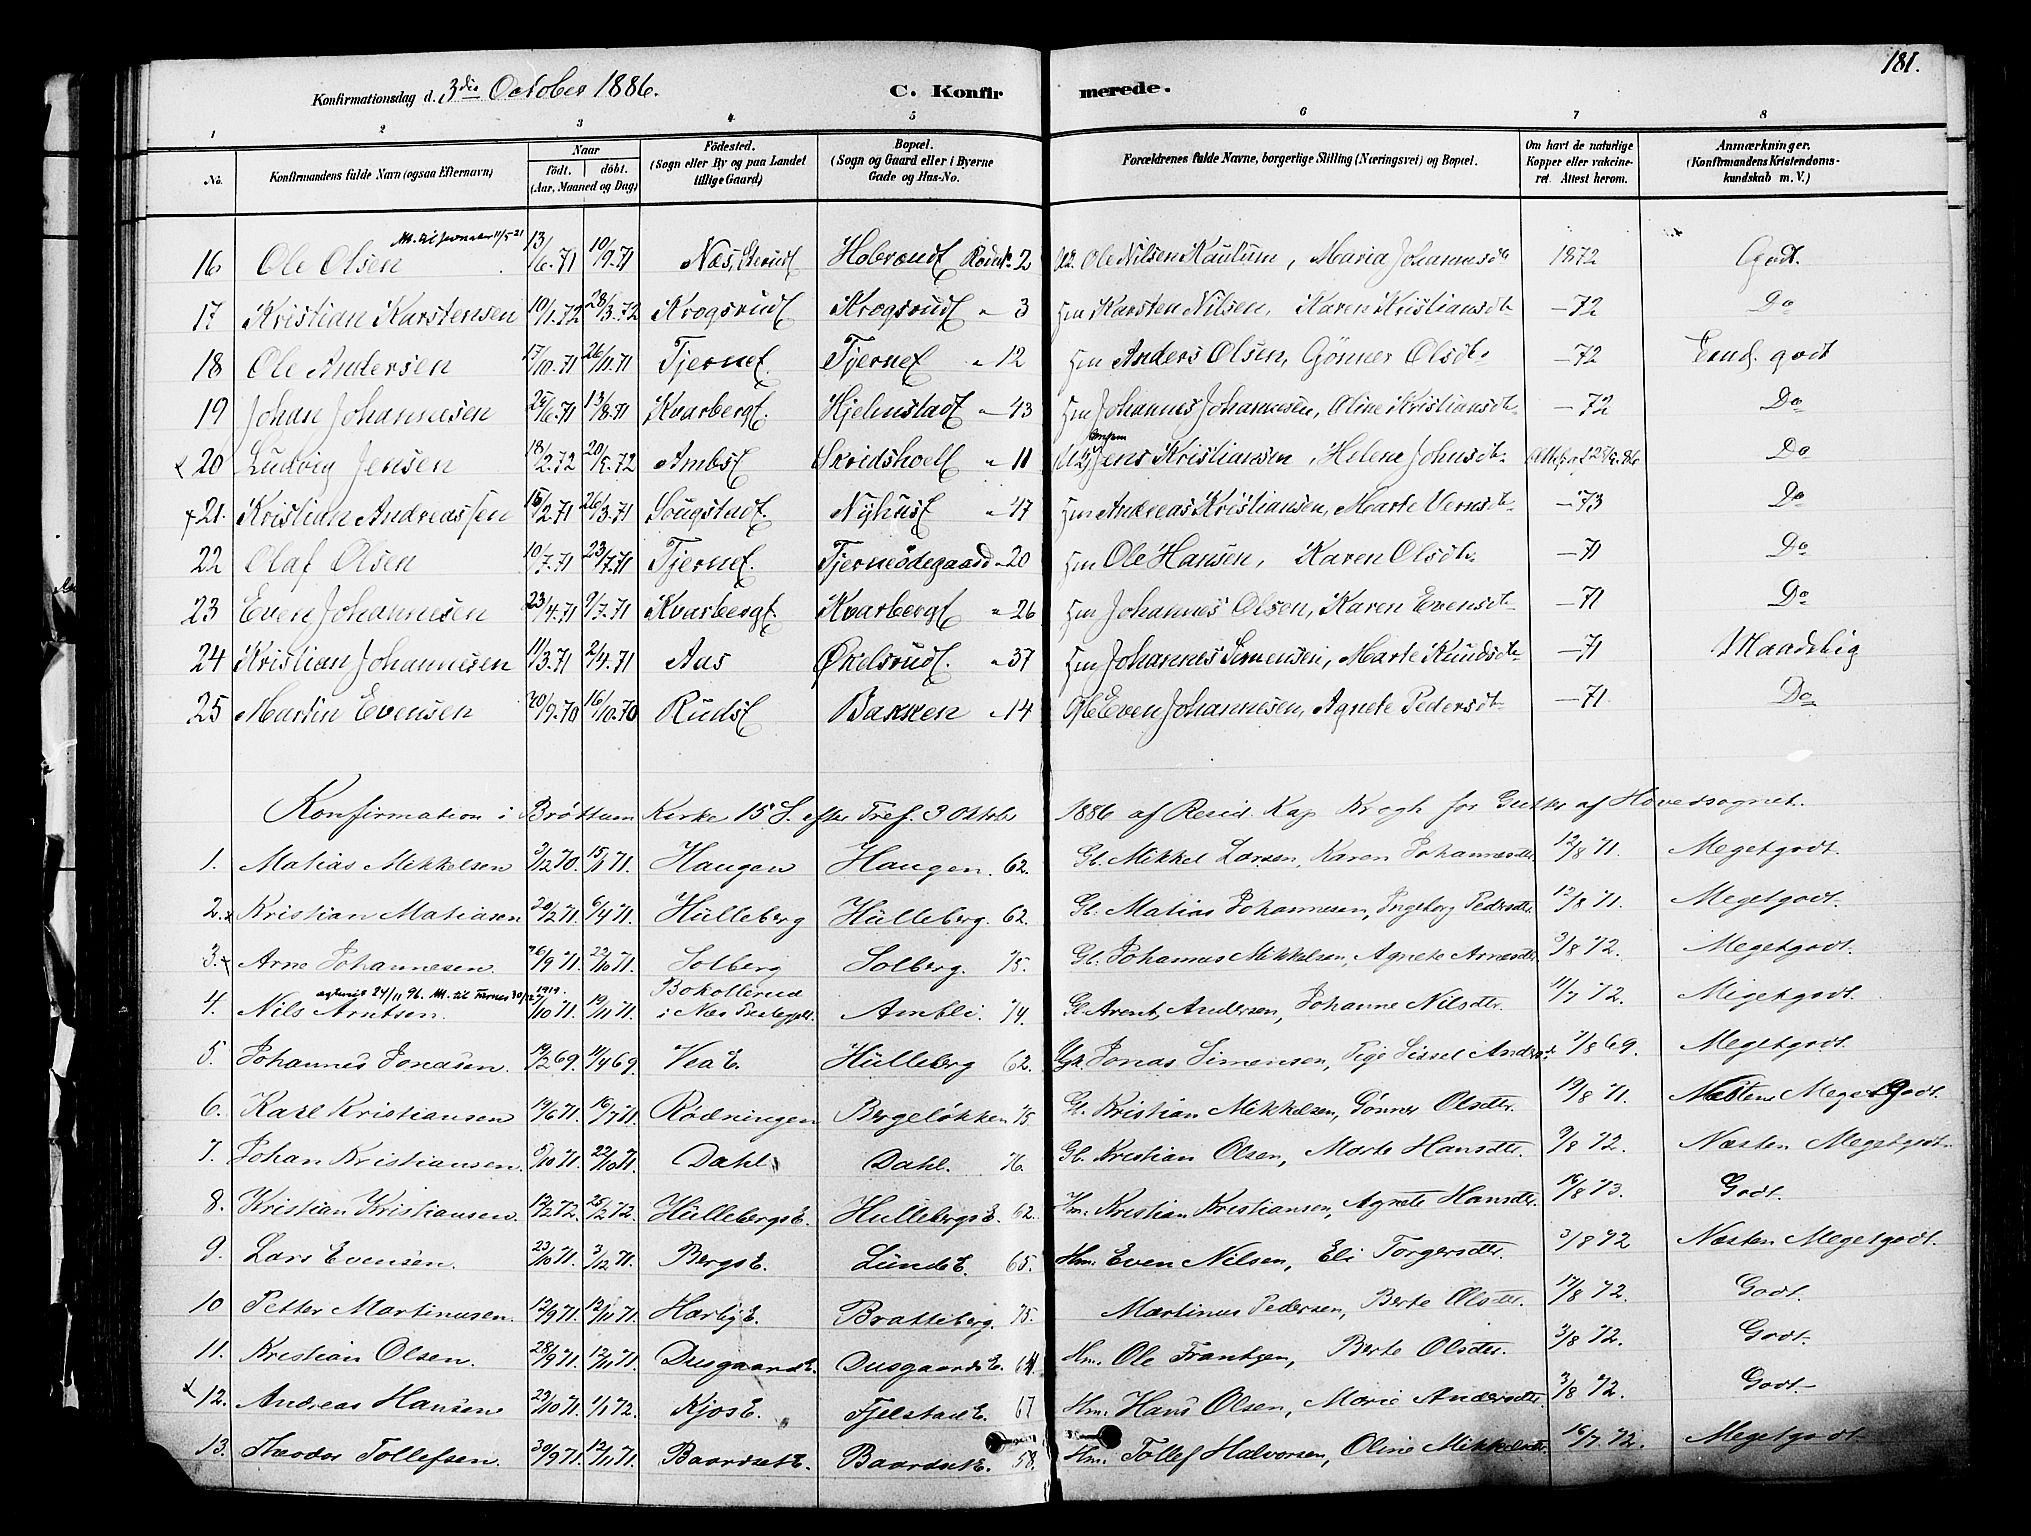 181.
Konfirmationsdag d. 3die October 1886. C. Konfirmerede.
1 2 3 4 5 6 7 8
No. Konfirmandens fulde Navn (ogsaa Efternavn) Naar födt. döbt. (Aar, Maaned og Dag) Födested. (Sogn eller By og paa Landet tillige Gaard) Bopæl. (Sogn og Gaard eller i Byerne Gade og Hus-No. Forældrenes fulde Navne, borgerlige Stilling (Næringsvei) og Bopæl. Om havt de naturlige Kopper eller vakcineret. Attest herom. Anmærkninger. (Konfirmandens Kristendomskundskab m. V.)
16 Ole Olsen 13/6.71 10/9.71 Næs, 2 Ole Nilsen Maria Johannesdt 1872 Godt.
17 Kristian Karstensen 19/1.72 28/3.72 Krogsrud Krogsrud " 3 Hm Karsten Nilsen, Karen Kristiansdt —72 Do
18 Ole Andersen 17/10.71 26/11.71 Tjerne Tjerne " 12 Hm Anders Olsen, Gönner Olsdt —72 godt
19 Johan Johannesen 25/6.71 13/8.71 Kvarberg Hjelmstad " 43 Hm Johannes Johannesen, Oline Kristiansdt —72 Do
x 20 Ludvig Jensen 18/2.72 20/5.72 Ambs " 11 Jens Kristiansen, Helene Johnsdt Do
x 21. Kristian Andreassen 15/2.71 26/3.71 Sougstad Nyhus " 47 Hm Andreas Kristiansen, Marte —73 Do
22 Olaf Olsen 10/7.71 23/7.71 Tjerne Tjerneödegaard " 20 Hm Ole Hansen, Karen Olsdt —71 Do
23 Even Johannesen 23/4.71 9/7.71 Kvarberg Kvarberg " 26 Hm Johannes Olsen, Karen Evensdt —71 Do
24 Kristian Johannesen 11/3.71 2/4.71 Aas Økelsrud " 37 Hm Johannes Simensen, Marte Knudsdt —71 Maadelig
25 Martin Evensen 20/9.70 16/10.70 Ruds Bakken " 14 Even Johannesen, Agnete Pedersdt —71. Do
Konfirmation i Brøttum Kirke 15 S. efter Tref. 3 Oktober 1886 af Resid. Kap Krogh for Gutter af Hovedsognet.
1. Matias Mikkelsen 3/12 70. 15/1 71. Haugen Haugen. 62. Gb. Mikkel Larsen, Karen Johannesdtr. 12/8 71. Megetgodt.
2. x Kristian Matiasen 20/2 71. 6/4 71. Hulleberg Hulleberg. 62. Gb. Matias Johannesen, Ingeborg Pedersdtr. 12/8 71. Megetgodt.
3. x Arne Johannesen. 26/9 71. 22/10 71. Solberg Solberg. 75. Gb. Johannes Mikkelsen, Agnete Arnesdtr. 3/8 72. Megetgodt.
4. Nils Arntsen. 7/10 71. 19/11 71. i Næs Ambli. 74. Gb. Arent Andersen, Johanne Nilsdtr. 11/7 72. Megetgodt.
5. Johannes Jonasen. 19/2 69. 11/4 69. Vea E. Hulleberg 62. Jonas Simensen, Pige Sissel 7/8 69. Megetgodt.
6. Karl Kristiansen 14/6 71. 16/7 71. Rødningen Bergeløkken 75 Gb. Kristian Mikkelsen, Gönner Olsdtr. 19/8 71. Næsten Megetgodt.
7. Johan Kristiansen. 5/10 71. 22/10 71. Dahl Dahl. 76. Gb. Kristian Olsen, Marte Hansdtr. 9/8 72. Næsten Megetgodt.
8. Kristian Kristiansen. 12/2 72. 25/2 72. Hullebergs E. Hullebergs E. 62. Hm. Kristian Kristiansen, Agnete Hansdtr. 16/8 73. Godt.
9. Lars Evensen. 23/10 71. 3/12 71. Bergs E. Lunds E. 65. Hm. Even Nilsen, Eli Torgersdtr. 3/8 72 Næsten Megetgodt.
10 Petter Martinusen. 12/9 71. 12/11 71. Harlig E. Bratteberg. 75. Martinus Pedersen, Berte Olsdtr. 17/8 72. Godt.
11. Kristian Olsen. 28/9 71. 12/11 71. Dusgaards E. Dusgaards E. 64. Hm. Ole Frantzen, Berte Olsdtr. 3/8 72. Godt.
x 12. Andreas Hansen 23/10 71. 1/1 72. Kjos E. Fjelstad E. 67 Hm. Hans Olsen, Marie Andersdtr. 3/8 72. Godt.
13. Theodor Tollefsen. 30/9 71. 12/11 71. Baardset E. Baardset E. 58. Hm. Tollef Halvorsen, Oline Mikkelsdtr. 16/7 72. Megetgodt.